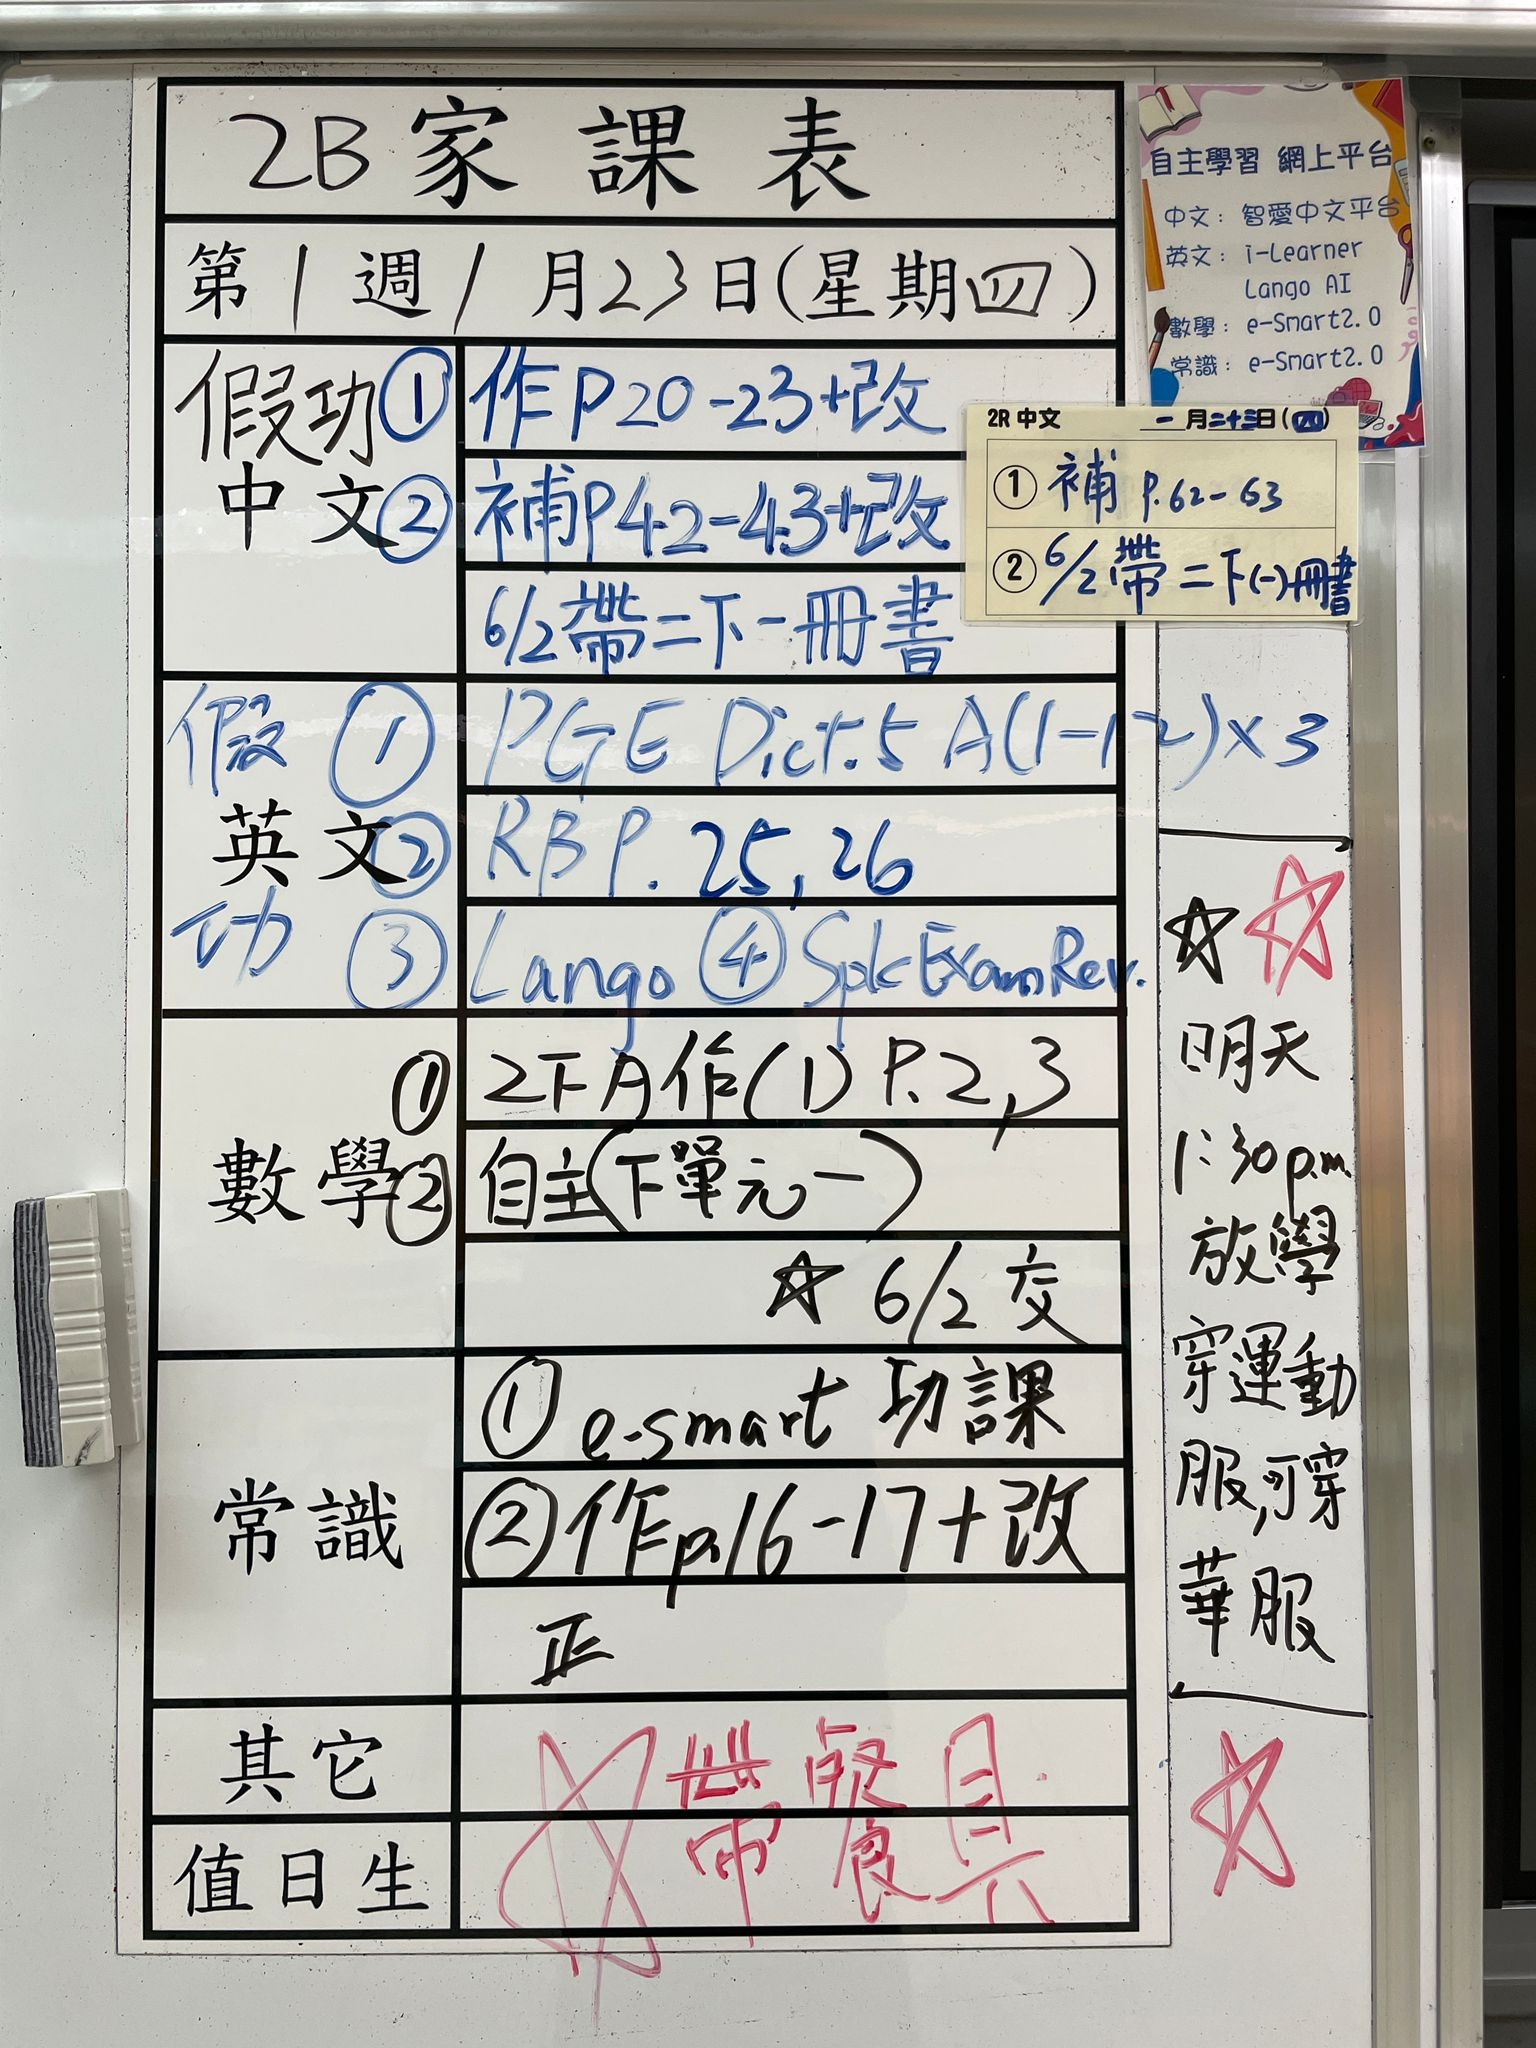 2B 家課表
第 1 週 1 月 23 日 (星期四)
假功
中文
① 作P20-23+改
② 補P42-43+改
6/2帶二下一冊書
假
英文
功
① PGE Dict.5 A(1-12)×3
② RB P. 25, 26
③ Lango ④ Spk Exam Rev.
數學
① 2下A作(1) P.2,3
② 自主(下單元一)
☆ 6/2 交
常識
① e-smart 功課
② 作p.16-17+改
正
其它
值日生
☆ 帶餐具
自主學習 網上平台
中文: 智愛中文平台
英文: i-Learner
Lango AI
數學: e-Smart2.0
常識: e-Smart2.0
2R 中文 一月二十三日(四)
① 補 P.62-63
② 6/2 帶二下(一)冊書
☆ ☆
明天
1:30p.m.
放學
穿運動
服,可穿
華服
☆